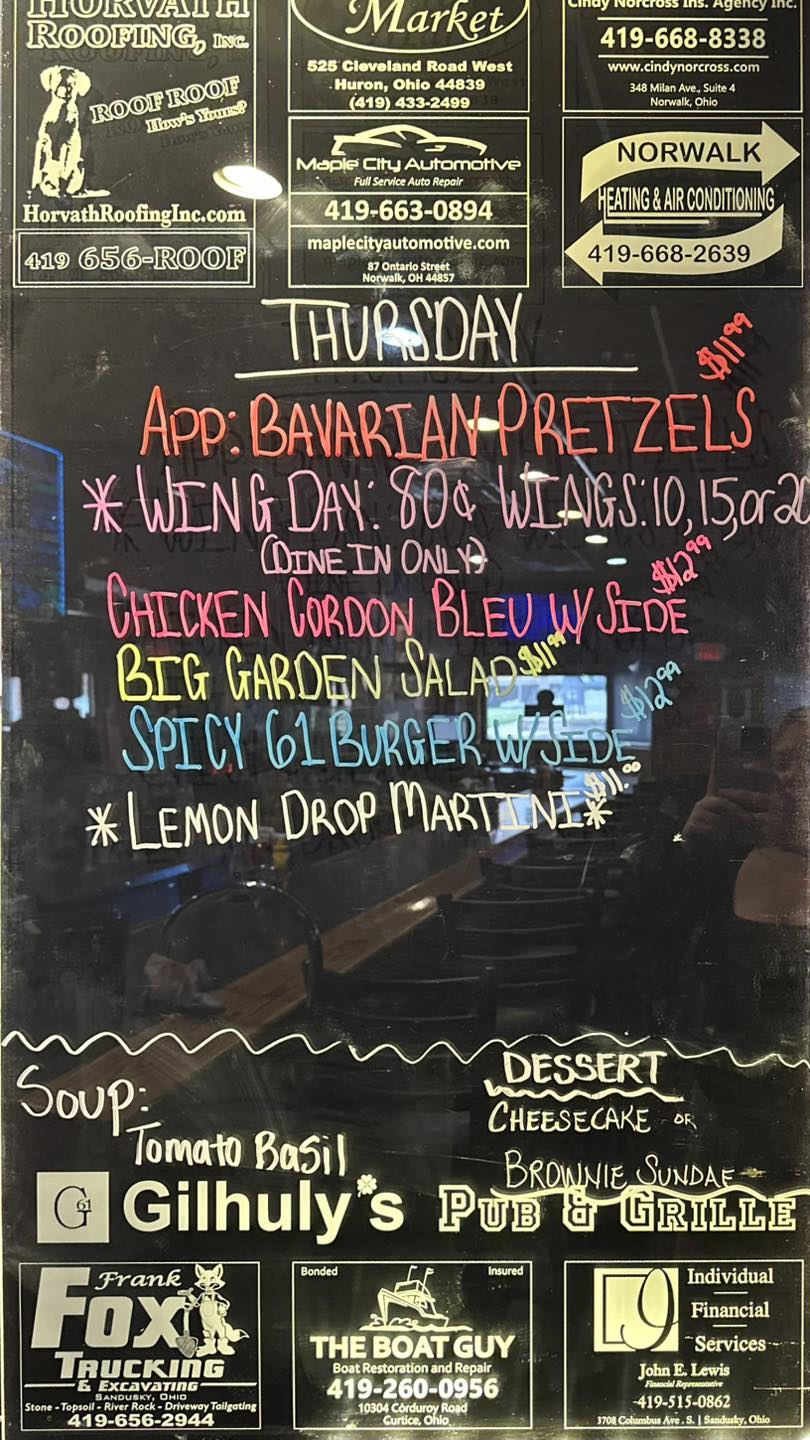 HORVATH
ROOFING, INC.
ROOF ROOF
How's Yours?
HorvathRoofingInc.com
419 656-ROOF
Market
525 Cleveland Road West
Huron, Ohio 44839
(419) 433-2499
Maple City Automotive
Full Service Auto Repair
419-663-0894
maplecityautomotive.com
87 Ontario Street
Norwalk, OH 44857
Cindy Norcross Ins. Agency Inc.
419-668-8338
www.cindynorcross.com
348 Milan Ave., Suite 4
Norwalk, Ohio
NORWALK
HEATING & AIR CONDITIONING
419-668-2639
THURSDAY
APP: BAVARIAN PRETZELS $11.99
* WING DAY: 80¢ WINGS: 10, 15, or 20
(DINE IN ONLY)
CHICKEN CORDON BLEU W/ SIDE $12.99
BIG GARDEN SALAD $11.99
SPICY 61 BURGER W/ SIDE $12.99
*LEMON DROP MARTINI* $11.00
SOUP:
Tomato Basil
DESSERT
CHEESECAKE OR
BROWNIE SUNDAE
G61 Gilhuly's PUB & GRILLE
Frank
FOX
TRUCKING
& EXCAVATING
SANDUSKY, OHIO
Stone - Topsoil - River Rock - Driveway Tailgating
419-656-2944
Bonded Insured
THE BOAT GUY
Boat Restoration and Repair
419-260-0956
10304 Corduroy Road
Curtice, Ohio
Individual
Financial
Services
John E. Lewis
Financial Representative
419-515-0862
3708 Columbus Ave. S. | Sandusky, Ohio